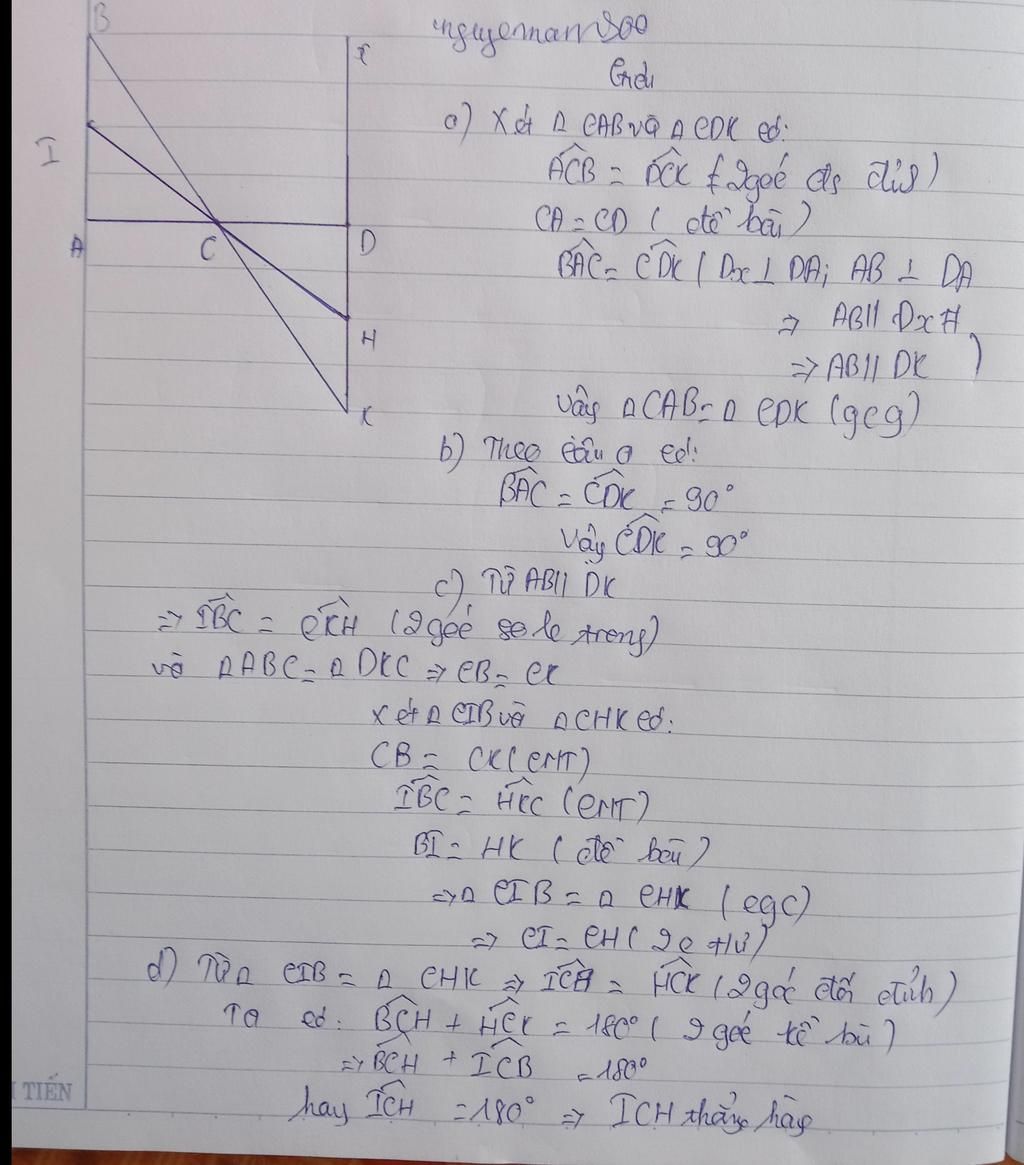 B
nguyennam200
x
Giải
a) Xét Δ CAB và Δ CDK có:
I
ACB = DCK ( 2 góc đđ đỉnh)
CA = CD ( đề bài )
A
C
D
BAC = CDK ( Dx ⊥ DA; AB ⊥ DA
⇒ AB // Dx
H
⇒ AB // DK )
K
Vậy ΔCAB = Δ CDK (gcg)
b) Theo câu a có:
BAC = CDK = 90°
Vậy CDK = 90°
c) Từ AB // DK
⇒ IBC = CKH (2 góc so le trong)
và ΔABC = Δ DKC ⇒ CB = CK
Xét Δ CIB và Δ CHK có:
CB = CK (CMT)
IBC = HKC (CMT)
BI = HK ( đề bài )
⇒ Δ CIB = Δ CHK (cgc)
⇒ CI = CH ( 2 c tứ )
d) Từ Δ CIB = Δ CHK ⇒ ICB = HCK (2 góc đối đỉnh)
Ta có: BCH + HCK = 180° ( 2 góc kề bù )
⇒ BCH + ICB = 180°
hay ICH = 180° ⇒ ICH thẳng hàng
TIẾN